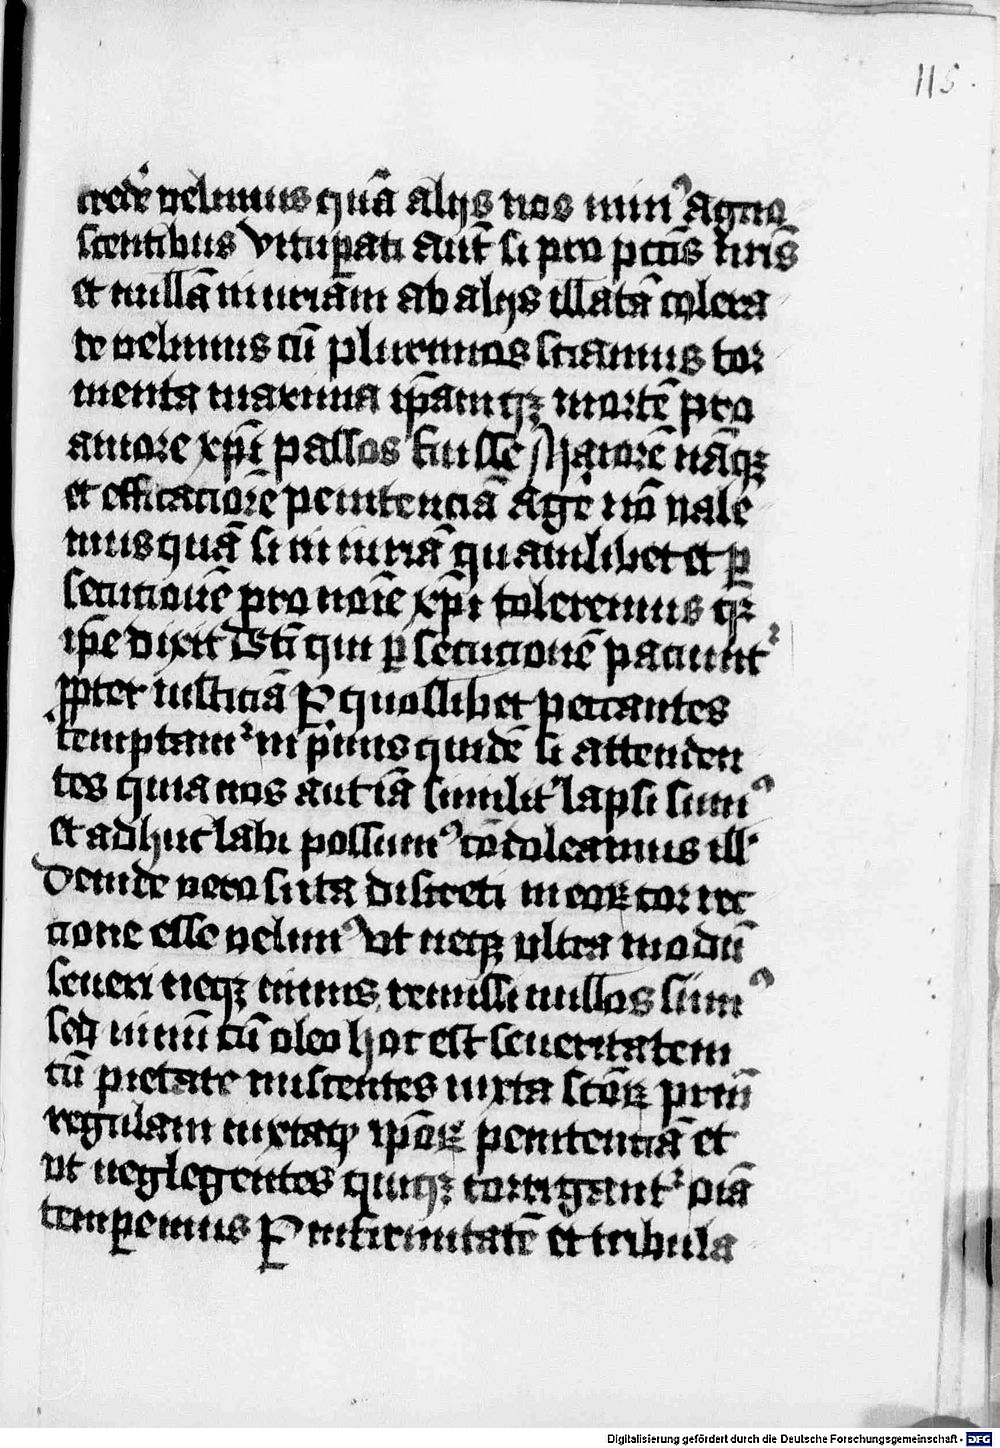 115.
credr̄ velimus quā alijs nos min⁹ agno
scentibus Vitupati aut̄ si pro pctīs nr̄is
et nullā iniuriam ab alijs illatā tolera
re velimus cū plurimos sciamus tor
menta maxima ip̄amqꝫ mortē pro
amore xp̄i passos fuisse Maiorē nāqꝫ
et efficaciorē penitenciā agē nō vale
mus quā si iniuriā quamlibet et ꝑ
secucionē pro noīe xp̄i toleremus qꝛ
ip̄e dixit Bt̄i qui ꝑsecucionē paciunt᷑
ꝓpter iusticiā P quoslibet peccantes
temptam᷑ in p̄mis quidē si attenden
tes quia nos aut iā similit᷑ lapsi sum⁹
et adhuc labi possum⁹ cōdoleamus ill᷑
Deinde vero si ita discreti in eoꝝ correc
cione esse velim⁹ Vt neqꝫ ultra modū
seueri neqꝫ nimis remissi nullos sim⁹
sed vinū cū oleo hoc est seueritatem
cū pietate miscentes iuxta sctōꝝ prm̄
regulam iuxtaqꝫ ip̄oꝝ penitenciā et
vt neglegentes quiqꝫ corrigant᷑ oīa
tempemus P infirmitatē et tribula
Digitalisierung gefördert durch die Deutsche Forschungsgemeinschaft - DFG